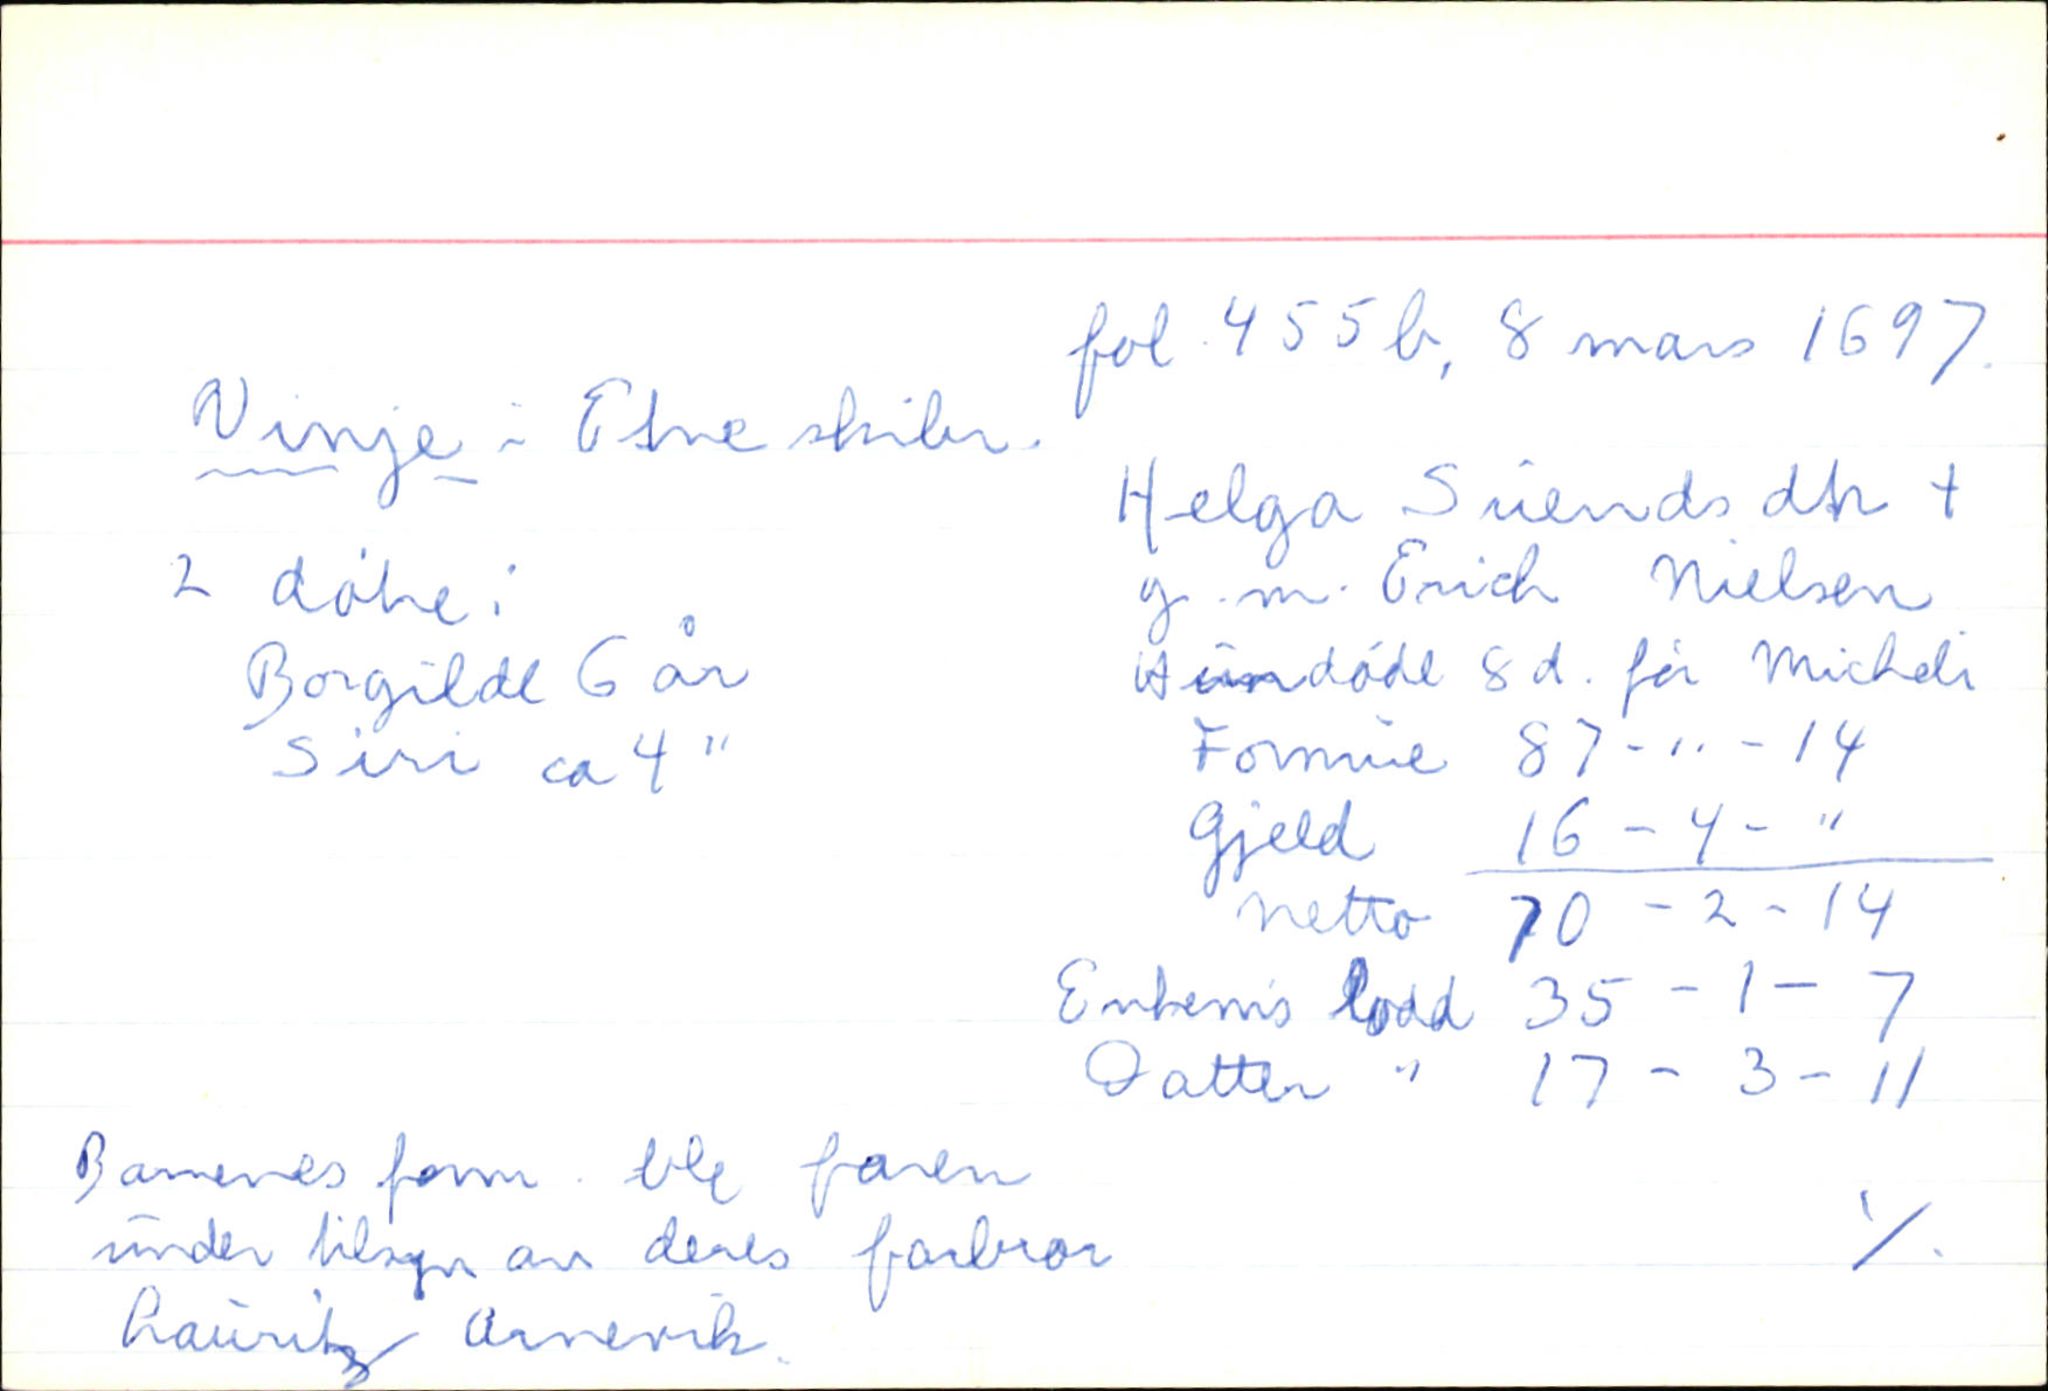 fol. 455b, 8 mars 1697.
Vinje i Etne skibr.
Helga Suendsdtr +
g. m. Erich Nielsen
Hun døde 8 d. før Micheli
Formue 87 - " - 14
Gjeld 16 - 4 - "
Netto 70 - 2 - 14
Enkem's lodd 35 - 1 - 7
Datter " 17 - 3 - 11
2 døtre:
Borgilde 6 år
Siri ca 4 "
Barnenes form. ble faren
under tilsyn av deres farbror
Lauritz Arnevik.
./.